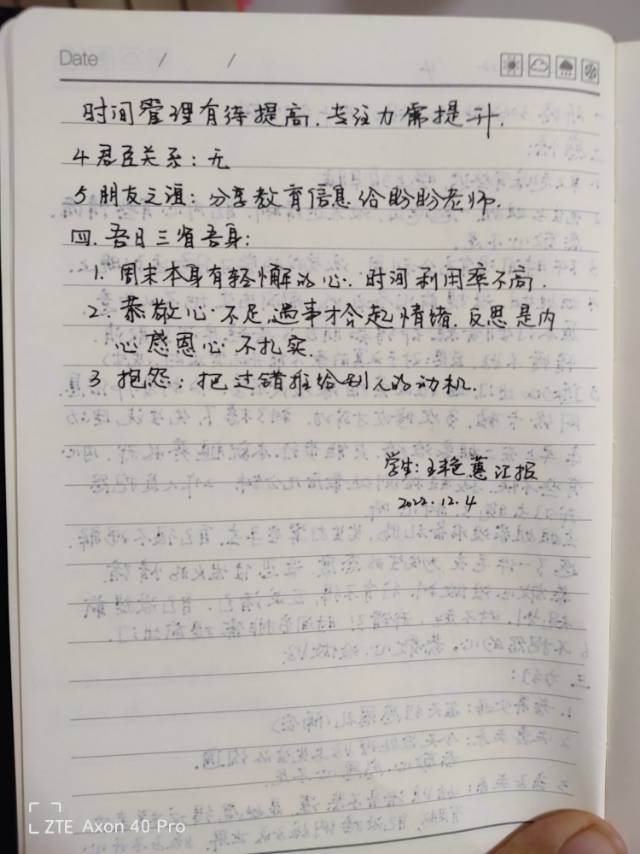 Date / /
时间管理有待提高．专注力需提升．
4 君臣关系：无
5 朋友之谊：分享教育信息给盼盼老师．
四．吾日三省吾身：
1．周末本身有轻懈的心．时间利用率不高．
2．恭敬心不足，遇事才会起情绪．反思是内
心感恩心不扎实．
3 抱怨：把过错推给别人的动机．
学生：王艳蕙汇报
2022.12.4
ZTE Axon 40 Pro